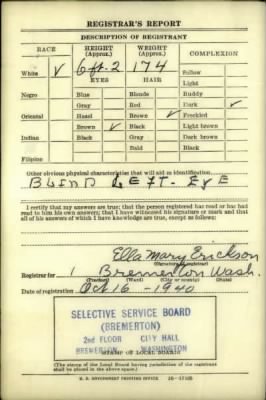 REGISTRAR'S REPORT
DESCRIPTION OF REGISTRANT
RACE HEIGHT (Approx.) WEIGHT (Approx.) COMPLEXION
White ✓ 6 ft. 2 174 Sallow
EYES HAIR Light
Negro Blue Blonde Ruddy
Gray Red Dark ✓
Oriental Hazel Brown ✓ Freckled
Brown ✓ Black Light brown
Indian Black Gray Dark brown
Bald Black
Filipino
Other obvious physical characteristics that will aid in identification
BLIND LEFT-EYE
I certify that my answers are true; that the person registered has read or has had
read to him his own answers; that I have witnessed his signature or mark and that
all of his answers of which I have knowledge are true, except as follows:
Ella Mary Erickson
(Signature of registrar)
Registrar for 1 Bremerton Wash.
(Precinct) (Ward) (City or county) (State)
Date of registration Oct 16 - 1940
SELECTIVE SERVICE BOARD
(BREMERTON)
2nd FLOOR CITY HALL
BREMERTON WASHINGTON
STAMP OF LOCAL BOARD
(The stamp of the Local Board having jurisdiction of the registrant
shall be placed in the above space.)
U. S. GOVERNMENT PRINTING OFFICE